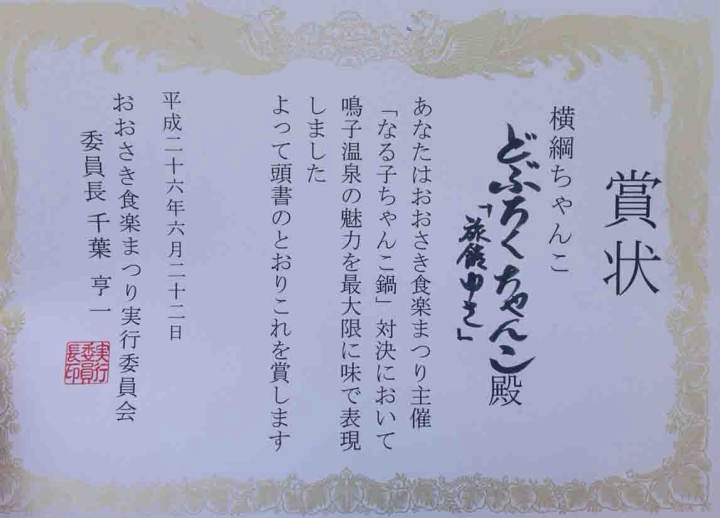 賞状
横綱ちゃんこ
どぶろくちゃんこ殿
「旅館ゆさ」
あなたはおおさき食楽まつり主催
「なる子ちゃんこ鍋」対決において
鳴子温泉の魅力を最大限に味で表現
しました
よって頭書のとおりこれを賞します
平成二十六年六月二十二日
おおさき食楽まつり実行委員会
委員長 千葉 亨一
実行委員長印